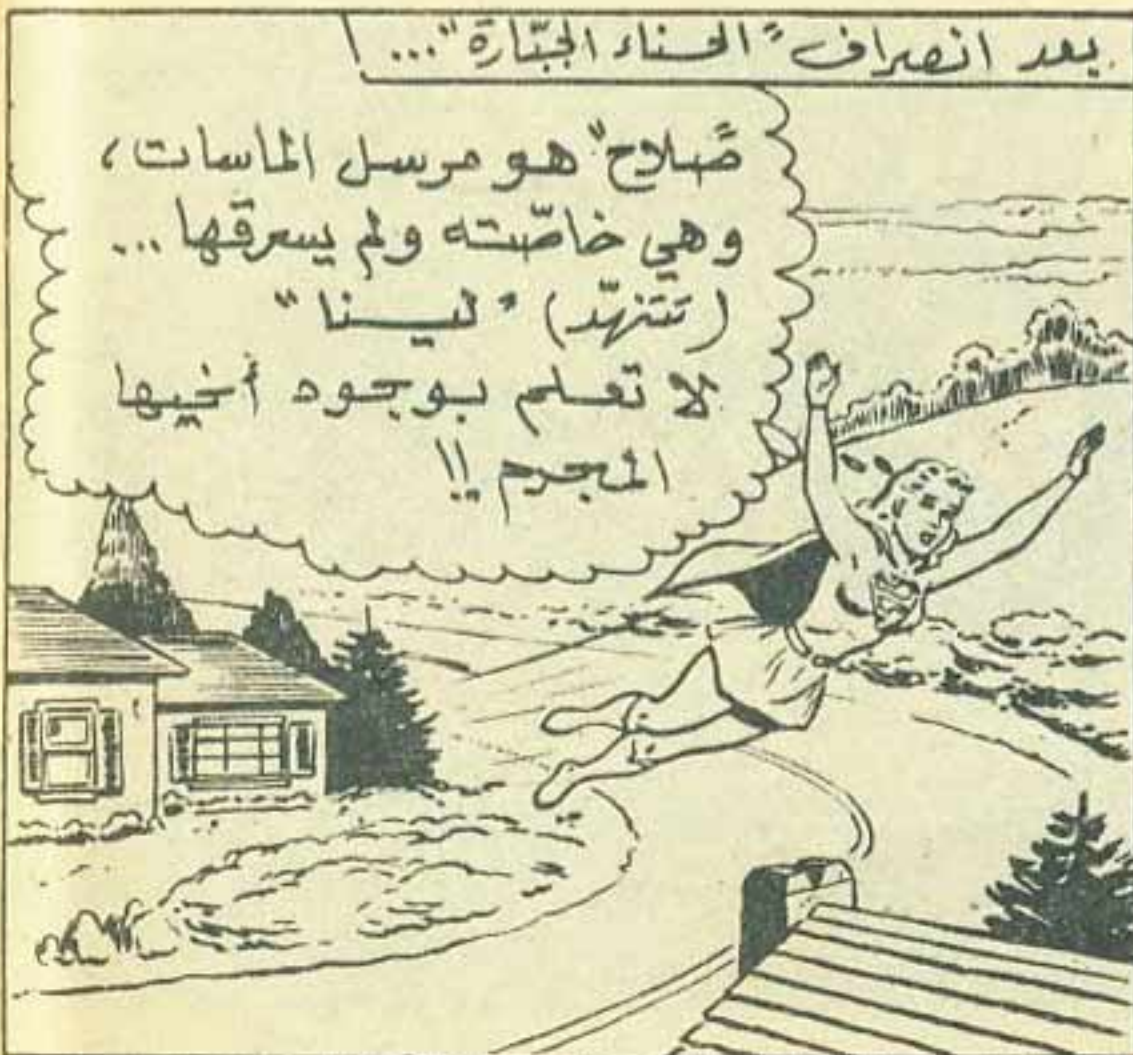 بعد انصراف "الحسناء الجبّارة"...
"صلاح" هو مرسل الماسات،
وهي خاصّته ولم يسرقها...
(تتنهّد) "لينا"
لا تعلم بوجود أخيها
المجرم !!